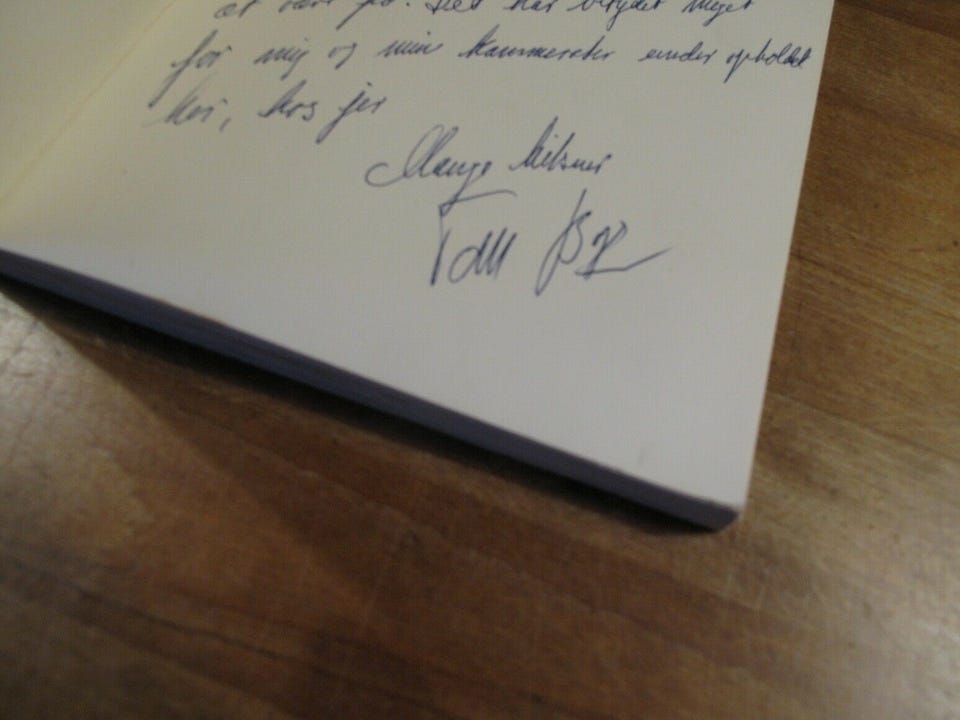 at være på. Det har betydet meget
for mig og mine kammerater under opholdet
her, hos jer
Mange hilsner